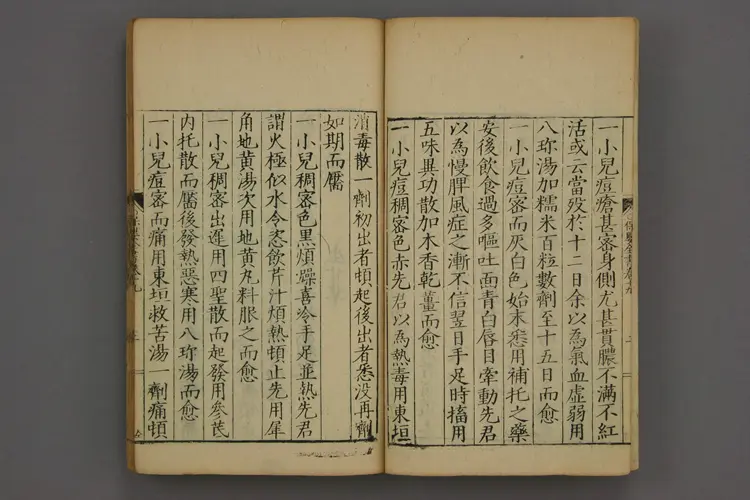 一小兒痘瘡甚密身側尤甚貫膿不滿不紅
活或云當歿於十二日余以為氣血虛弱用
八珍湯加糯米百粒數劑至十五日而愈
一小兒痘密而灰白色始末悉用補托之藥
安後飲食過多嘔吐面青白唇目牽動先君
以為慢脾風症之漸不信翌日手足時搐用
五味異功散加木香乾薑而愈
一小兒痘稠密色赤先君以為熱毒用東垣
消毒散一劑初出者頓起後出者悉没再劑
如期而靨
一小兒稠密色黑煩燥喜冷手足並熱先君
謂火極似水令恣飲芹汁煩熱頓止先用犀
角地黄湯次用地黄丸料服之而愈
一小兒稠密出遲用四聖散而起發用參芪
内托散而靨後發熱惡寒用八珎湯而愈
一小兒痘密而痛用東垣救苦湯一劑痛頓